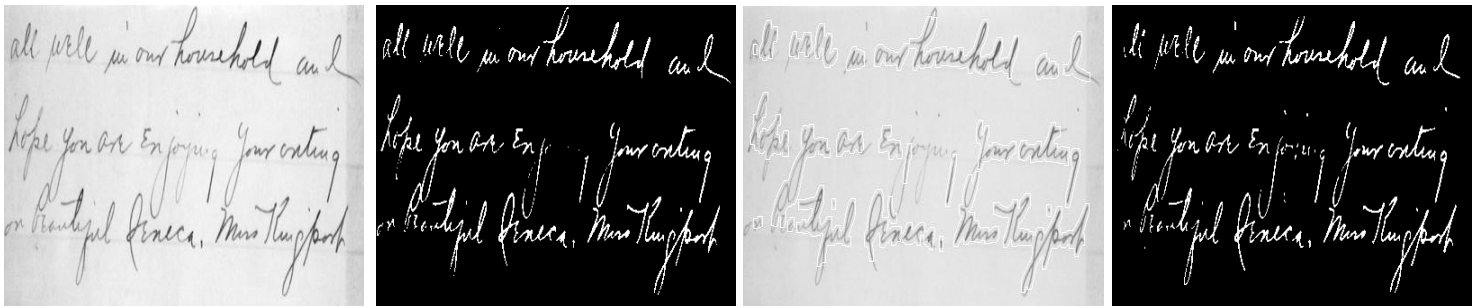 all well in our household and
hope you are Enjoying your outing
on beautiful Seneca, Miss Kingport
all well in our household and
hope you are your outing
on beautiful Seneca, Miss Kingport
all well in our household and
hope you are Enjoying your outing
on beautiful Seneca, Miss Kingport
all well in our household and
hope you are Enjoying your outing
on beautiful Seneca, Miss Kingport